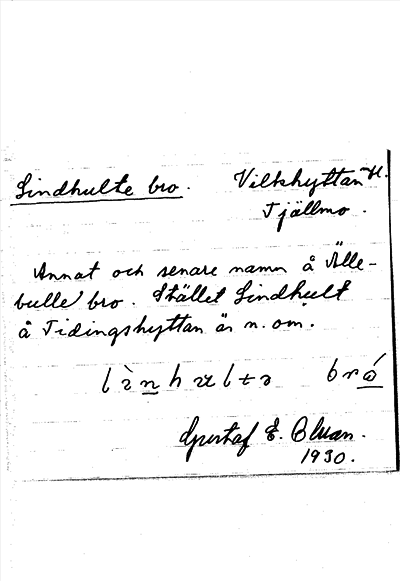 Lindhulte bro. Vilkshyttan H.
Tjällmo.
Annat och senare namn å Älle-
bulle bro. Stället Lindhult
å Tidingshyttan är n. om.
Gustaf E. Bluan.
1930.